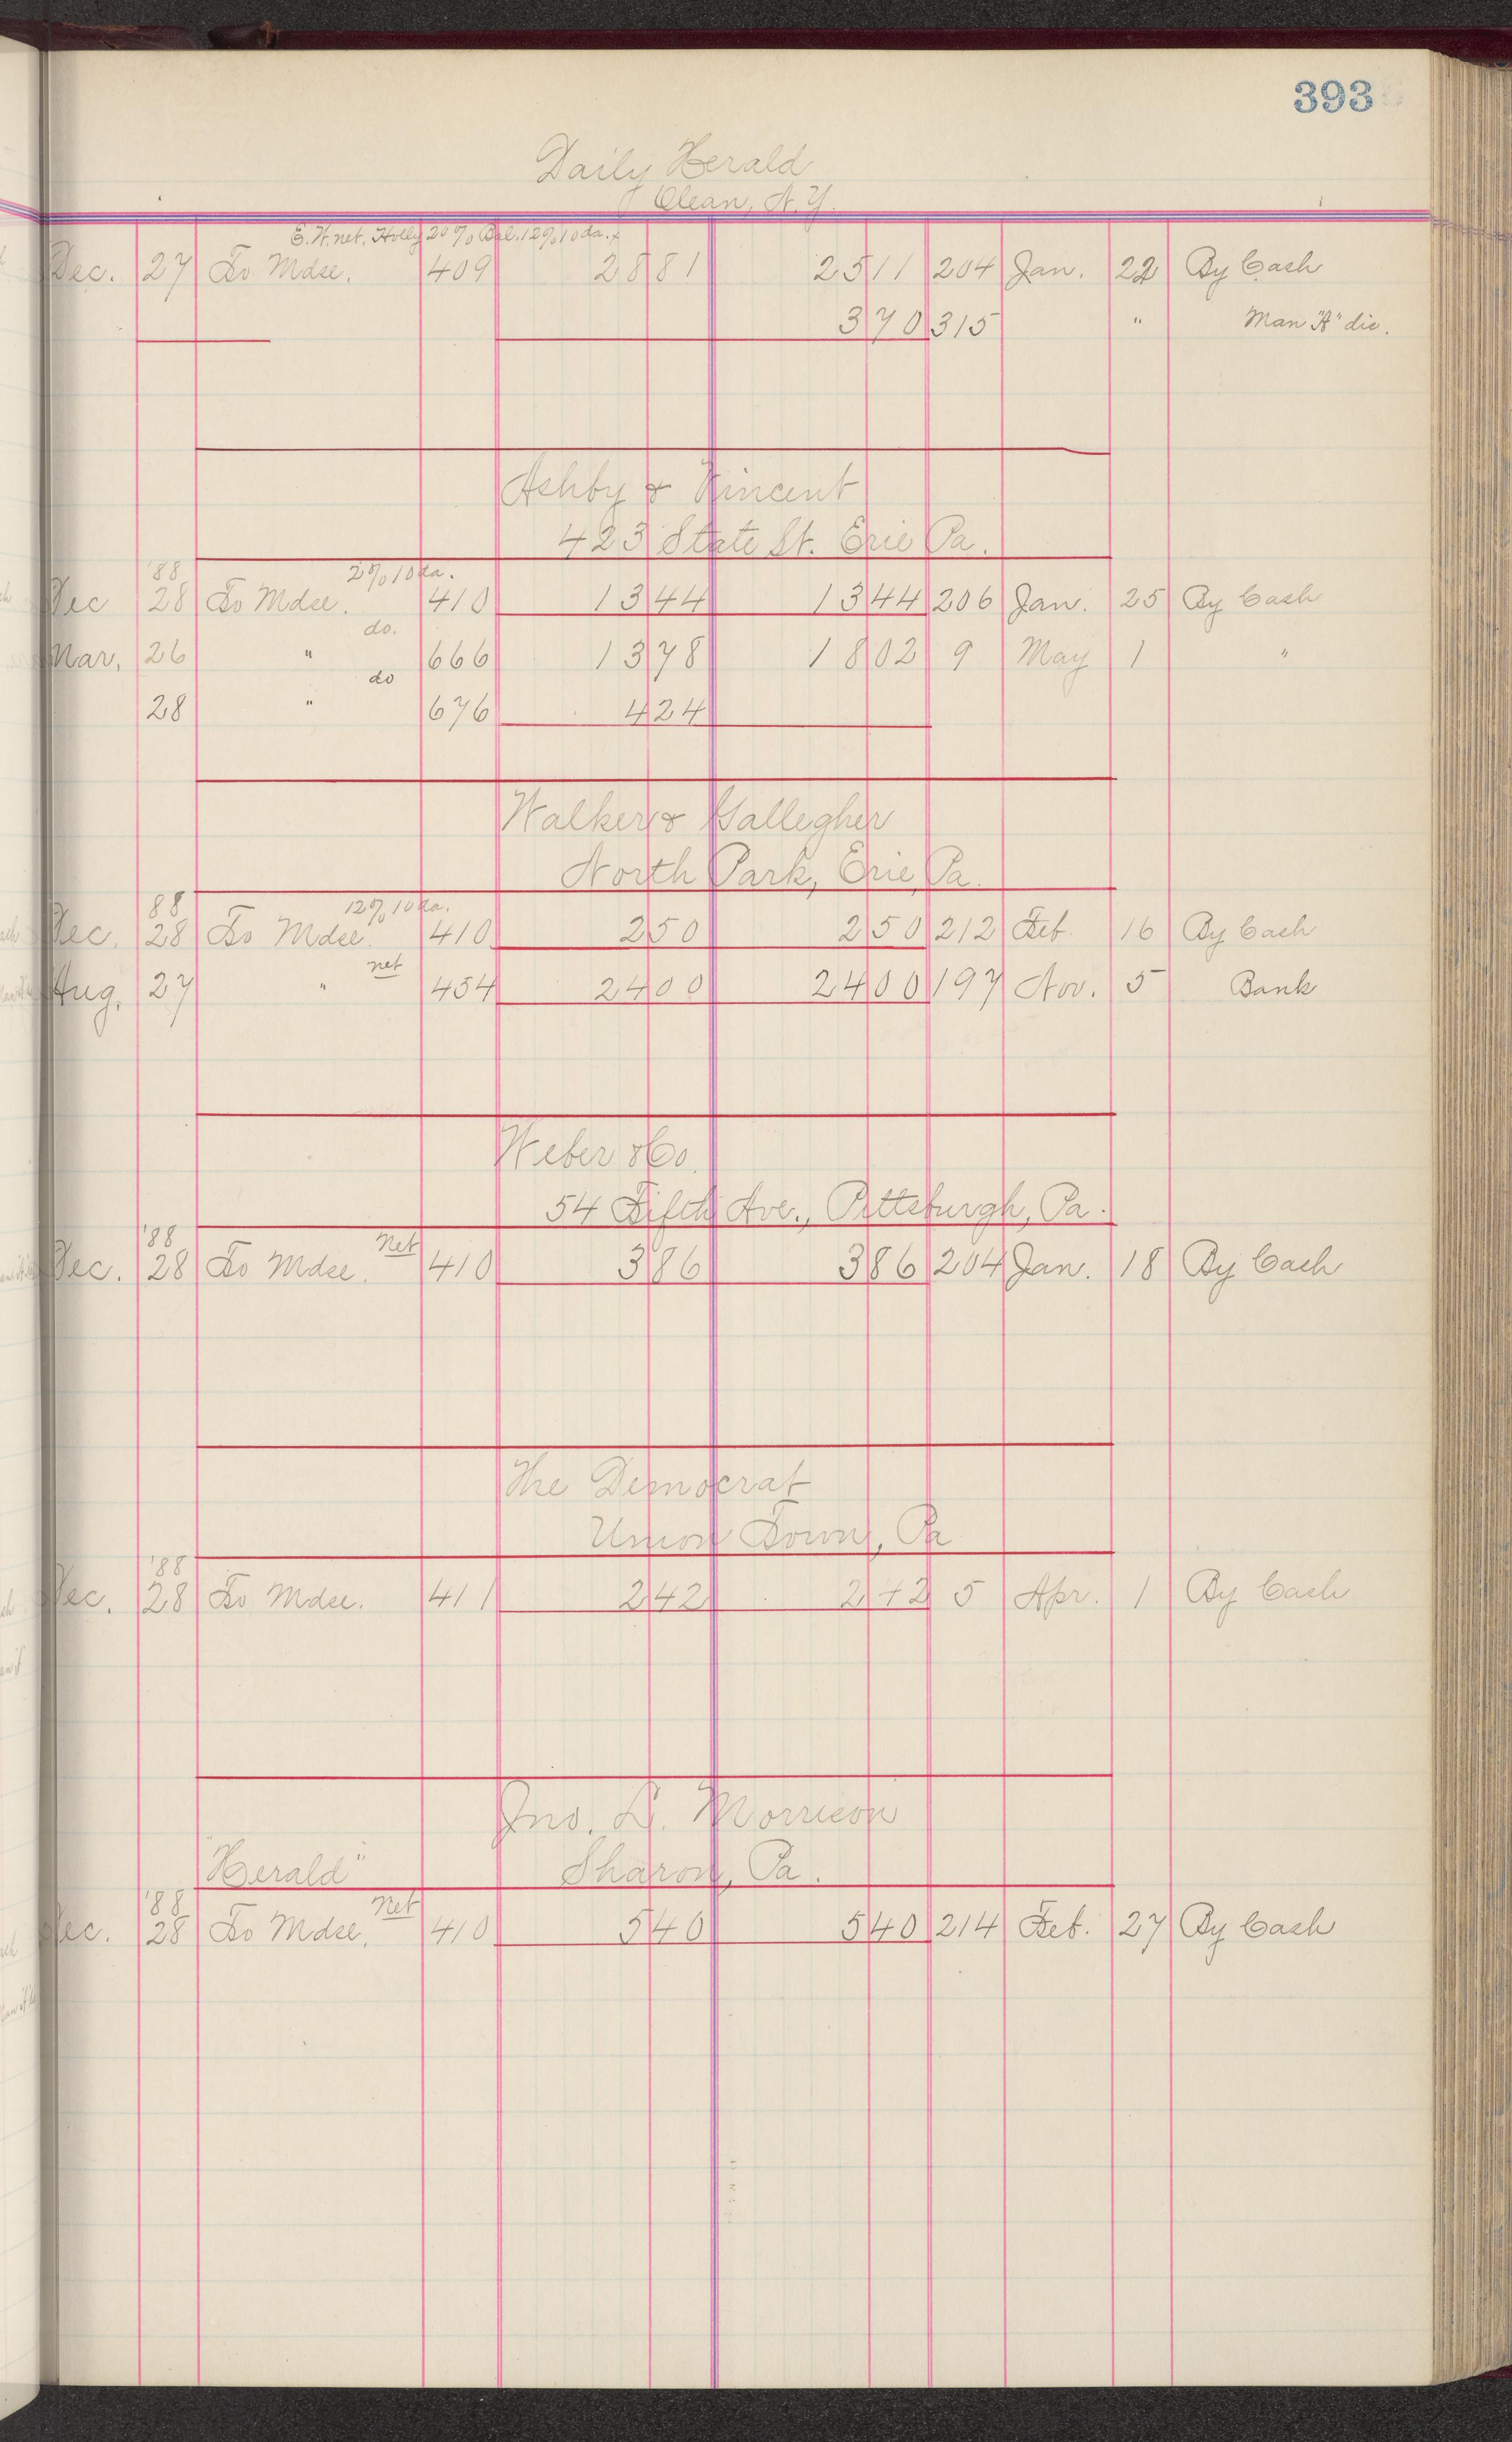 393
Daily Herald
Olean, N.Y.
E.W. net. Holly 20% Bal. 12% 10 da.
Dec. 27 To Mdse. 409 28 81 25 11 204 Jan. 22 By Cash
3 70 315 " Man "A" dis.
Ashby & Vincent
423 State St. Erie Pa.
'88 2% 10 da.
Dec 28 To Mdse. 410 13 44 13 44 206 Jan. 25 By Cash
do.
Mar. 26 " 666 13 78 18 02 9 May 1 "
do
28 " 676 4 24
Walker & Gallegher
North Park, Erie, Pa.
88 12% 10 da.
Dec. 28 To Mdse. 410 2 50 2 50 212 Feb. 16 By Cash
net
Aug. 27 " 454 24 00 24 00 197 Nov. 5 Bank
Weber & Co.
54 Fifth Ave., Pittsburgh, Pa.
'88 Net
Dec. 28 To Mdse. 410 3 86 3 86 204 Jan. 18 By Cash
The Democrat
Union Town, Pa
'88
Dec. 28 To Mdse. 411 2 42 2 42 5 Apr. 1 By Cash
Jno. L. Morrison
"Herald" Sharon, Pa.
'88 Net
Dec. 28 To Mdse. 410 5 40 5 40 214 Feb. 27 By Cash